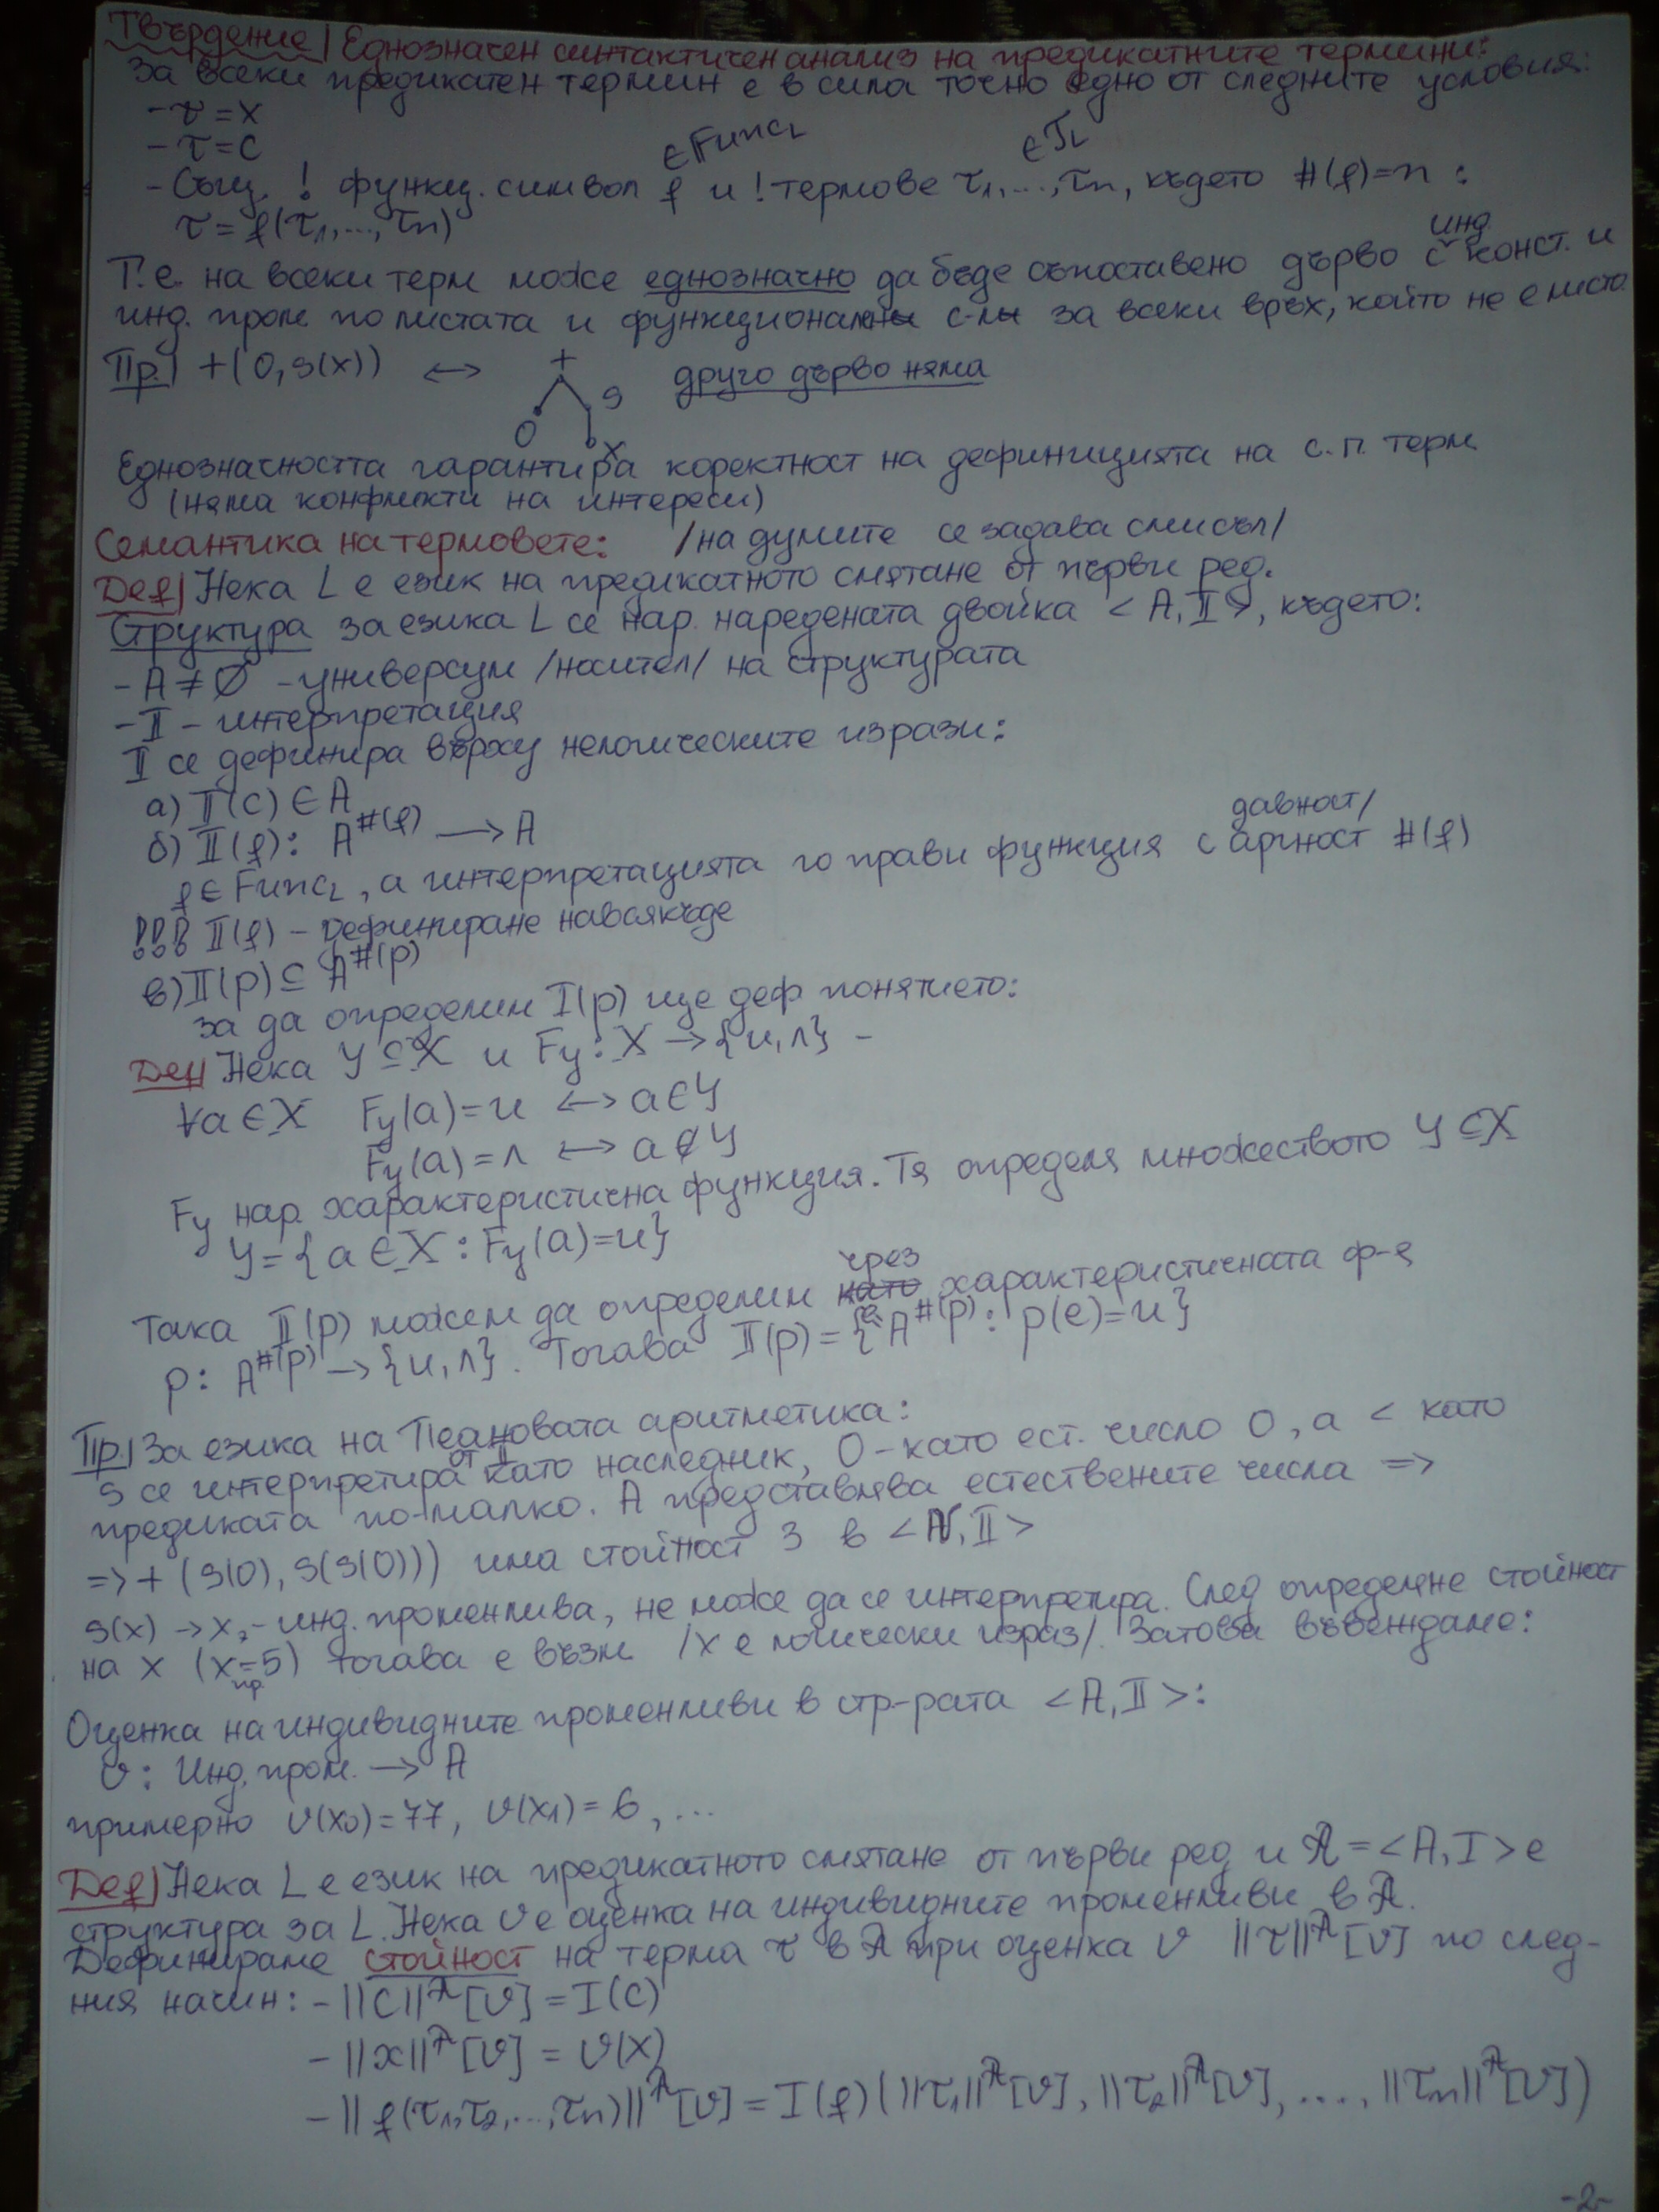 Твърдение | Еднозначен синтактичен анализ на предикатните термини:
За всеки предикатен термин е в сила точно едно от следните условия:
- τ = x
- τ = c
∈ Func_L ∈ T_L
- Същ. ! функц. символ f и ! термове τ₁, ..., τₙ, където #(f)=n :
τ = f(τ₁, ..., τₙ)
инд.
Т.е. на всеки терм може еднозначно да бъде съпоставено дърво с конст. и
инд. пром по листата и функционални с-ли за всеки връх, който не е листо
Пр.| +(0, s(x)) ↔ + друго дърво няма
s
0
x
Еднозначността гарантира коректност на дефиницията на с. п. терм
(няма конфликти на интереси)
Семантика на термовете: /на думите се задава смисъл/
Def| Нека L е език на предикатното смятане от първи ред.
Структура за езика L се нар. наредената двойка <A, I>, където:
- A ≠ ∅ - универсум /носител/ на структурата
- I - интерпретация
I се дефинира върху нелогическите изрази:
а) I(c) ∈ A
давност/
б) I(f): A^#(f) → A
f ∈ Func_L, а интерпретацията го прави функция с арност #(f)
!!! I(f) - дефиниране навсякъде
в) I(p) ⊆ A^#(p)
за да определим I(p) ще деф понятието:
Def| Нека Y ⊆ X и F_Y : X → {и, л} -
∀a ∈ X F_Y(a) = и ↔ a ∈ Y
F_Y(a) = л ↔ a ∉ Y
F_Y нар. характеристична функция. Тя определя множеството Y ⊆ X
Y = {a ∈ X : F_Y(a) = и}
чрез
Така I(p) можем да определим като характеристичната ф-я
p: A^#(p) → {и, л}. Тогава I(p) = {e: A^#(p) : p(e) = и}
Пр.| За езика на Пеановата аритметика:
s се интерпретира от I като наследник, 0 - като ест. число 0, а < като
предиката по-малко. A представлява естествените числа ⇒
⇒ + (s(0), s(s(0))) има стойност 3 в <N, I>
s(x) → x, - инд. променлива, не може да се интерпретира. След определяне стойност
на x (x=5) тогава е възм. /x е логически израз/. Затова въвеждаме:
пр.
Оценка на индивидните променливи в стр-рата <A, I>:
v: Инд. пром. → A
примерно v(x₀) = 77, v(x₁) = 6, ...
Def| Нека L е език на предикатното смятане от първи ред и 𝒜 = <A, I> е
структура за L. Нека v е оценка на индивидните променливи в 𝒜.
Дефинираме стойност на терма τ в 𝒜 при оценка v ||τ||^𝒜[v] по след-
ния начин: - ||c||^𝒜[v] = I(c)
- ||x||^𝒜[v] = v(x)
- ||f(τ₁, τ₂, ..., τₙ)||^𝒜[v] = I(f)(||τ₁||^𝒜[v], ||τ₂||^𝒜[v], ...., ||τₙ||^𝒜[v])
-2-